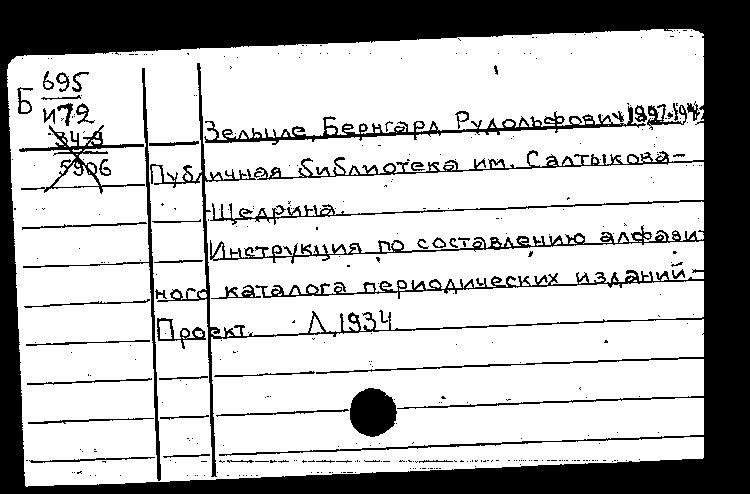 Б 695
и72
34-9
5906
Зельцле, Бернгард Рудольфович, 1897-194
Публичная библиотека им. Салтыкова-
Щедрина.
Инструкция по составлению алфавит
ного каталога периодических изданий.-
Проект. Л, 1934